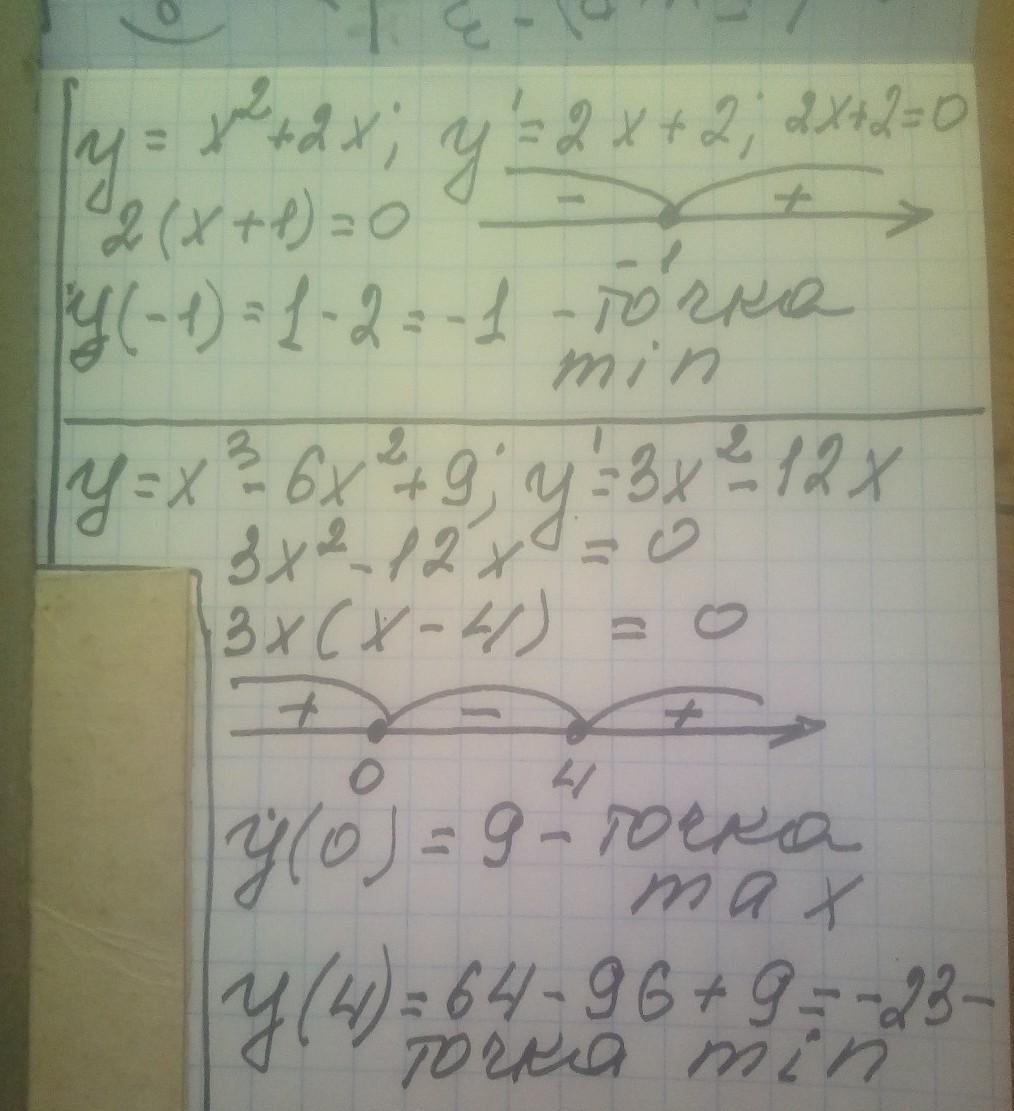 y = x² + 2x; y' = 2x + 2; 2x+2=0
2(x+1) = 0
- +
-1
y(-1) = 1 - 2 = -1 - точка
min
y = x³ - 6x² + 9; y' = 3x² - 12x
3x² - 12x = 0
3x(x - 4) = 0
+ - +
0 4
y(0) = 9 - точка
max
y(4) = 64 - 96 + 9 = -23 -
точка min